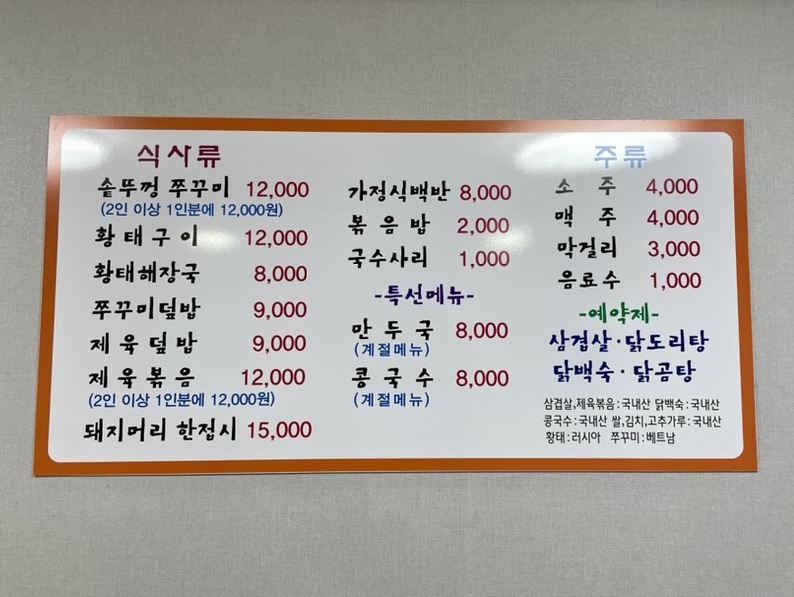 식사류
솥뚜껑 쭈꾸미 12,000
(2인 이상 1인분에 12,000원)
황태구이 12,000
황태해장국 8,000
쭈꾸미덮밥 9,000
제육덮밥 9,000
제육볶음 12,000
(2인 이상 1인분에 12,000원)
돼지머리 한접시 15,000
가정식백반 8,000
볶음밥 2,000
국수사리 1,000
-특선메뉴-
만두국 8,000
(계절메뉴)
콩국수 8,000
(계절메뉴)
주류
소주 4,000
맥주 4,000
막걸리 3,000
음료수 1,000
-예약제-
삼겹살·닭도리탕
닭백숙·닭곰탕
삼겹살,제육볶음:국내산 닭백숙:국내산
콩국수:국내산 쌀,김치,고추가루:국내산
황태:러시아 쭈꾸미:베트남